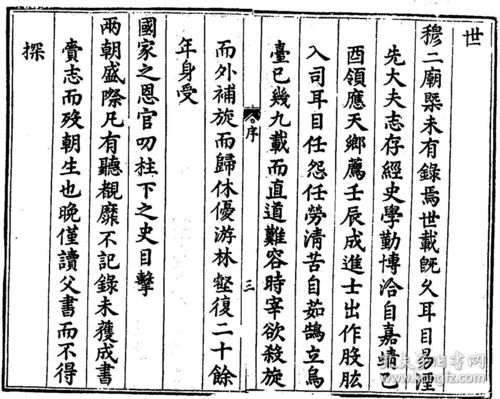 世
穆二廟槩未有錄焉世載既久耳目易湮
先大夫志存經史學勤博洽自嘉靖己
酉領應天鄉薦壬辰成進士出作股肱
入司耳目任怨任勞清苦自茹鵠立烏
臺已幾九載而直道難容時宰欲殺旋
序
三
而外補旋而歸休優游林壑復二十餘
年身受
國家之恩官叨柱下之史目擊
兩朝盛際凡有聽觀靡不記錄未獲成書
賫志而歿朝生也晚僅讀父書而不得
探